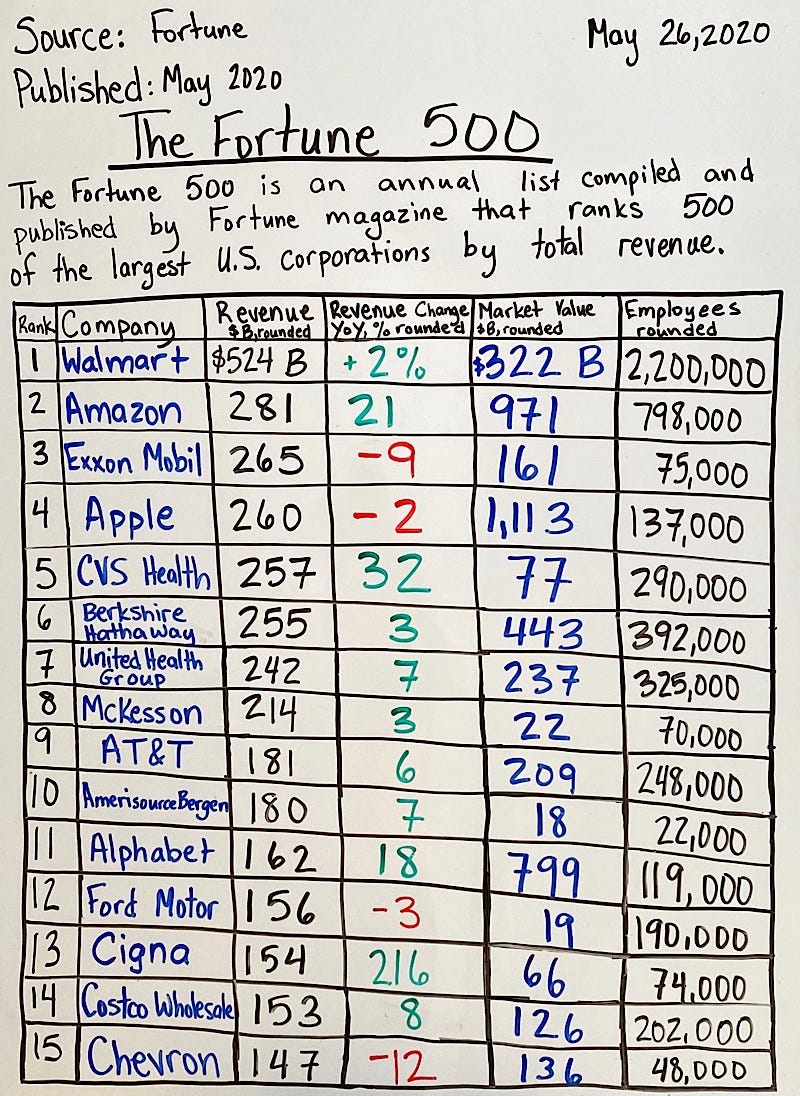 Source: Fortune May 26, 2020
Published: May 2020
The Fortune 500
The Fortune 500 is an annual list compiled and
published by Fortune magazine that ranks 500
of the largest U.S. corporations by total revenue.
Rank Company Revenue Revenue Change Market Value Employees
$B, rounded YoY, % rounded $B, rounded rounded
1 Walmart $524 B +2% $322 B 2,200,000
2 Amazon 281 21 971 798,000
3 Exxon Mobil 265 -9 161 75,000
4 Apple 260 -2 1,113 137,000
5 CVS Health 257 32 77 290,000
6 Berkshire Hathaway 255 3 443 392,000
7 United Health Group 242 7 237 325,000
8 McKesson 214 3 22 70,000
9 AT&T 181 6 209 248,000
10 AmerisourceBergen 180 7 18 22,000
11 Alphabet 162 18 799 119,000
12 Ford Motor 156 -3 19 190,000
13 Cigna 154 216 66 74,000
14 Costco Wholesale 153 8 126 202,000
15 Chevron 147 -12 136 48,000